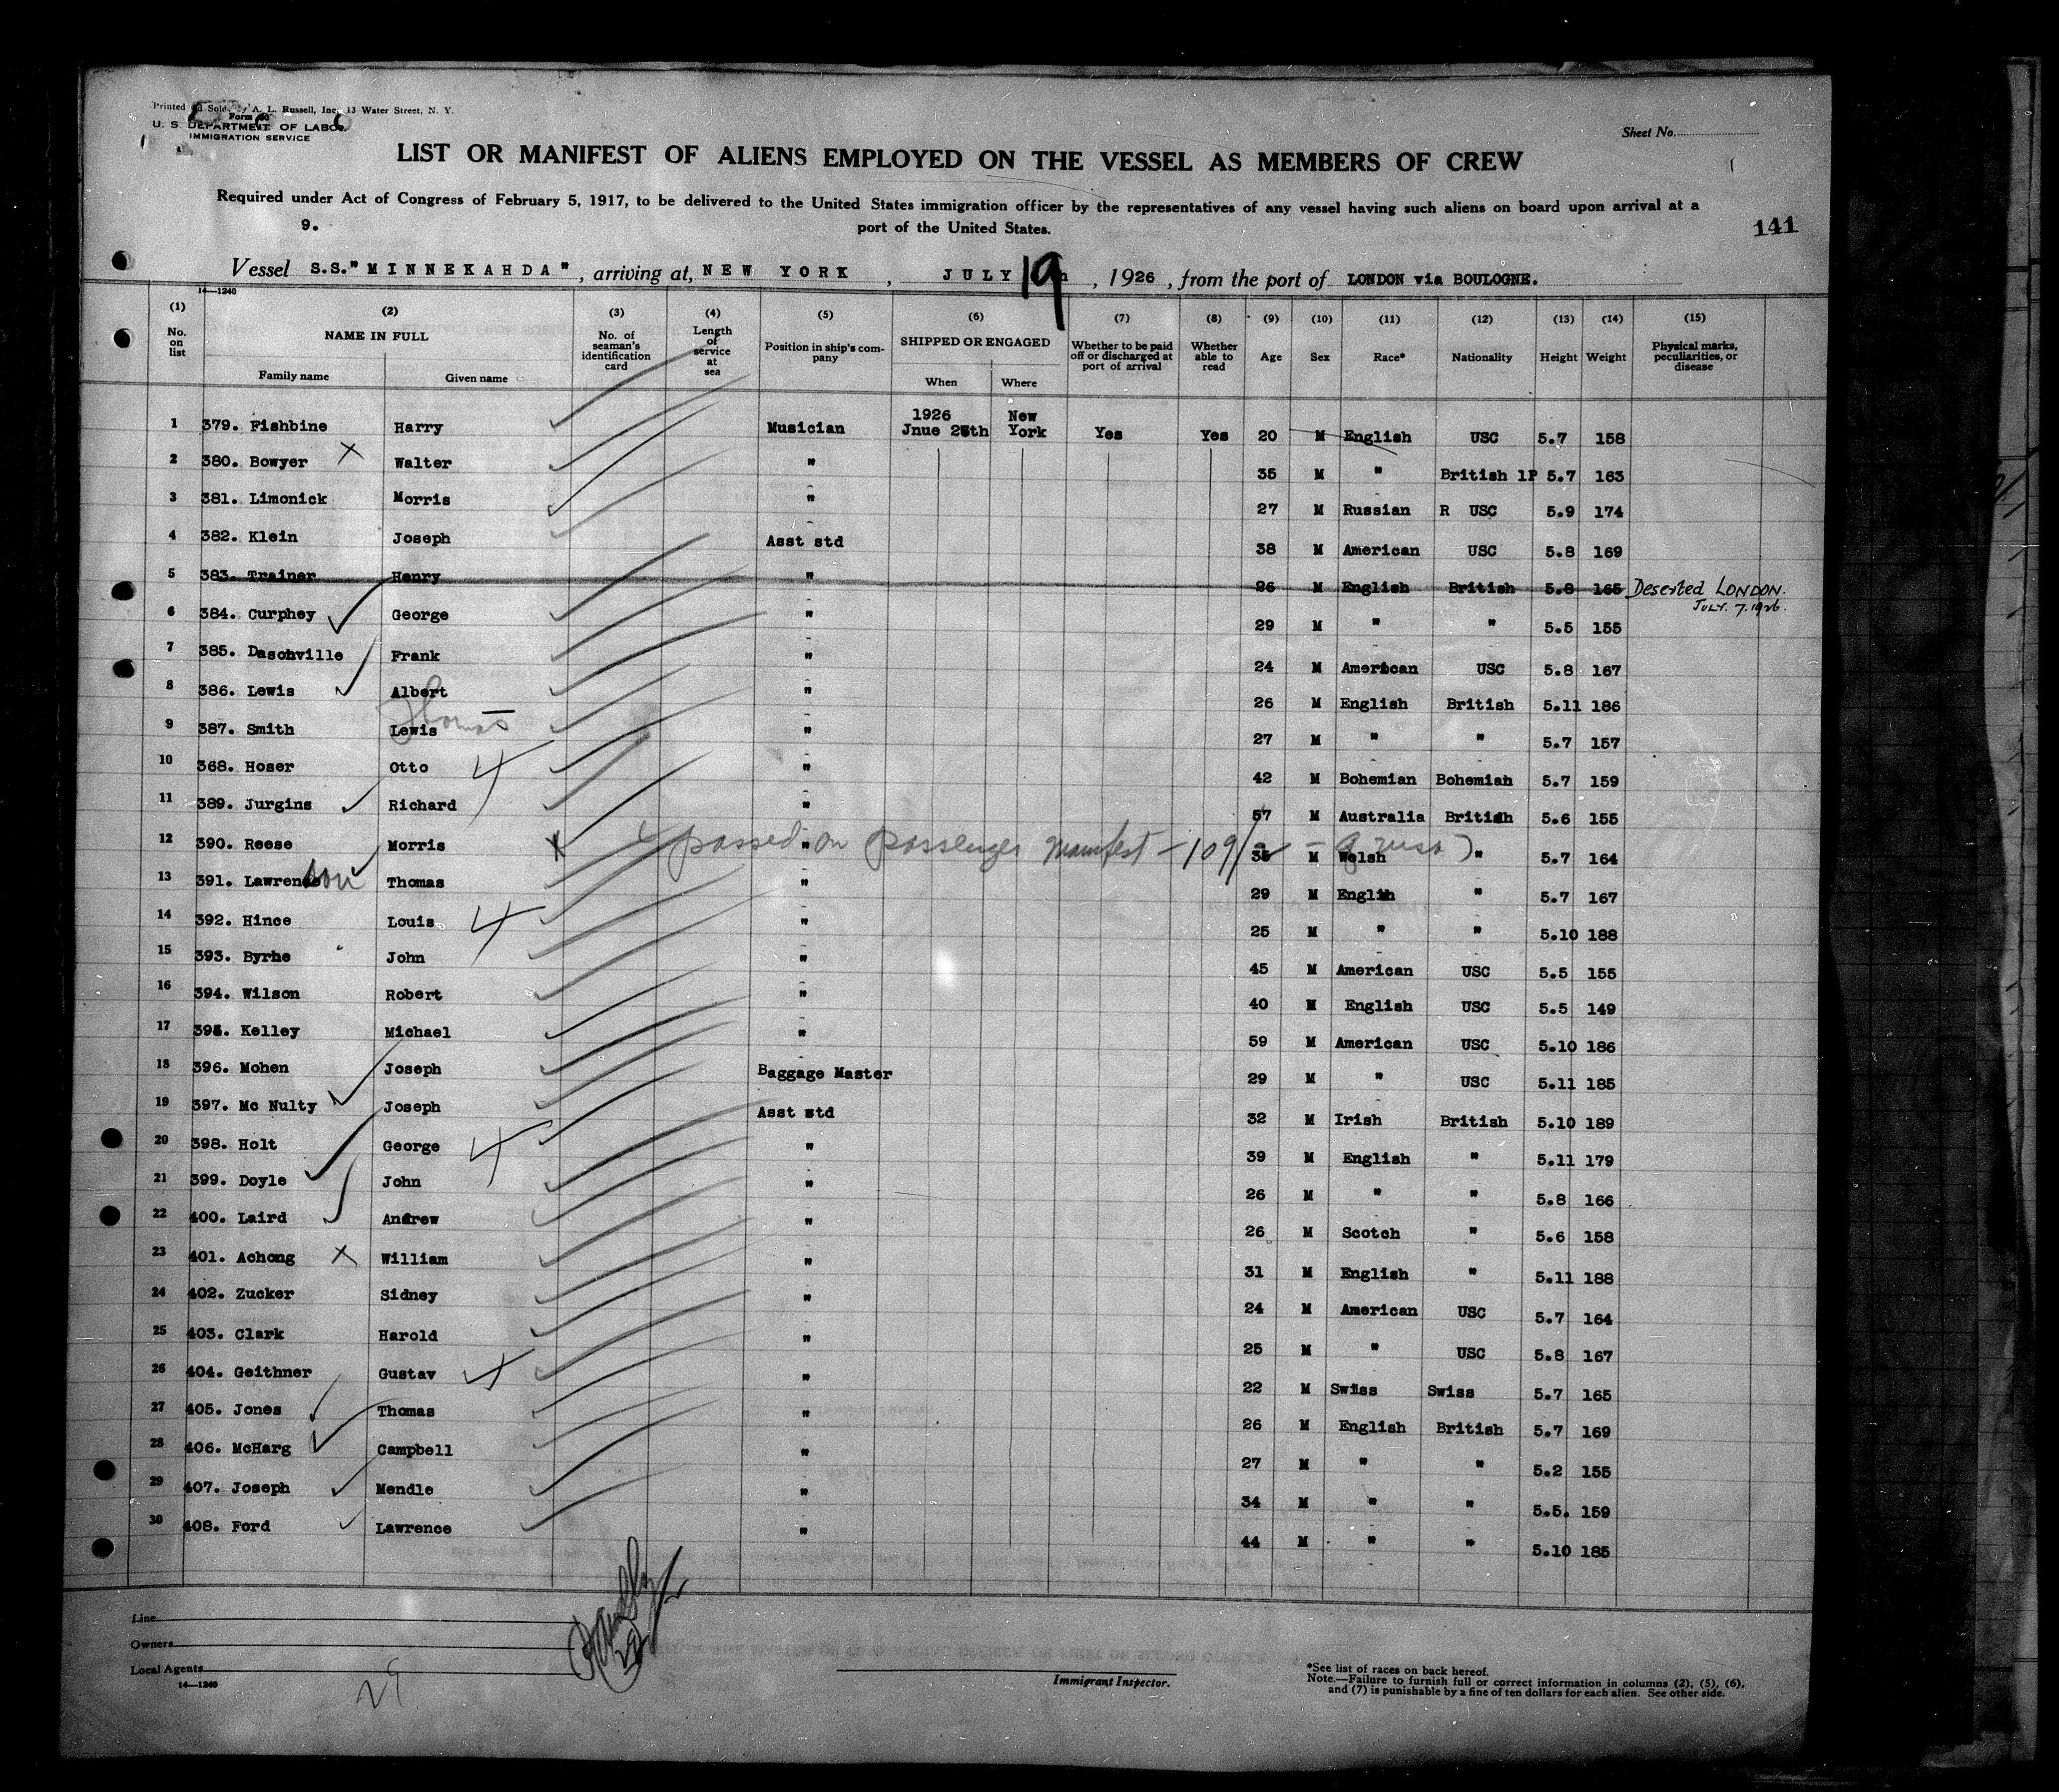 Printed and Sold by A. L. Russell, Inc. 13 Water Street, N. Y.
Form
U. S. DEPARTMENT OF LABOR
IMMIGRATION SERVICE
Sheet No.
LIST OR MANIFEST OF ALIENS EMPLOYED ON THE VESSEL AS MEMBERS OF CREW
Required under Act of Congress of February 5, 1917, to be delivered to the United States immigration officer by the representatives of any vessel having such aliens on board upon arrival at a
9. port of the United States. 141
Vessel S.S."MINNEKAHDA", arriving at, NEW YORK, JULY 19, 1926, from the port of LONDON via BOULOGNE.
14—1240
(1) (2) (3) (4) (5) (6) (7) (8) (9) (10) (11) (12) (13) (14) (15)
No. on list NAME IN FULL Family name Given name No. of seaman's identification card Length of service at sea Position in ship's company SHIPPED OR ENGAGED When Where Whether to be paid off or discharged at port of arrival Whether able to read Age Sex Race* Nationality Height Weight Physical marks, peculiarities, or disease
1 379. Fishbine Harry Musician 1926 Jnue 25th New York Yes Yes 20 M English USC 5.7 158
2 380. Bowyer X Walter " 35 M " British 1P 5.7 163
3 381. Limonick Morris " 27 M Russian R USC 5.9 174
4 382. Klein Joseph Asst std 38 M American USC 5.8 169
5 383. Trainer Henry " 26 M English British 5.8 165 Deserted LONDON. JULY. 7. 1926.
6 384. Curphey George " 29 M " " 5.5 155
7 385. Daschville Frank " 24 M American USC 5.8 167
8 386. Lewis Albert " 26 M English British 5.11 186
9 387. Smith Lewis Thomas " 27 M " " 5.7 157
10 368. Hoser Otto " 42 M Bohemian Bohemian 5.7 159
11 389. Jurgins Richard " 57 M Australia British 5.6 155
12 390. Reese Morris X (passed on passenger manifest - 109/ " M Welsh " 5.7 164
13 391. Lawrence son Thomas " 29 M English " 5.7 167
14 392. Hince Louis " 25 M " " 5.10 188
15 393. Byrne John " 45 M American USC 5.5 155
16 394. Wilson Robert " 40 M English USC 5.5 149
17 395. Kelley Michael " 59 M American USC 5.10 186
18 396. Mohen Joseph Baggage Master 29 M " USC 5.11 185
19 397. Mc Nulty Joseph Asst std 32 M Irish British 5.10 189
20 398. Holt George " 39 M English " 5.11 179
21 399. Doyle John " 26 M " " 5.8 166
22 400. Laird Andrew " 26 M Scotch " 5.6 158
23 401. Achong X William " 31 M English " 5.11 188
24 402. Zucker Sidney " 24 M American USC 5.7 164
25 403. Clark Harold " 25 M " USC 5.8 167
26 404. Geithner Gustav " 22 M Swiss Swiss 5.7 165
27 405. Jones Thomas " 26 M English British 5.7 169
28 406. McHarg Campbell " 27 M " " 5.2 155
29 407. Joseph Mendle " 34 M " " 5.5. 159
30 408. Ford Lawrence " 44 M " " 5.10 185
Line
Owners
Local Agents
14—1240
29
Immigrant Inspector.
*See list of races on back hereof.
Note.—Failure to furnish full or correct information in columns (2), (5), (6),
and (7) is punishable by a fine of ten dollars for each alien. See other side.